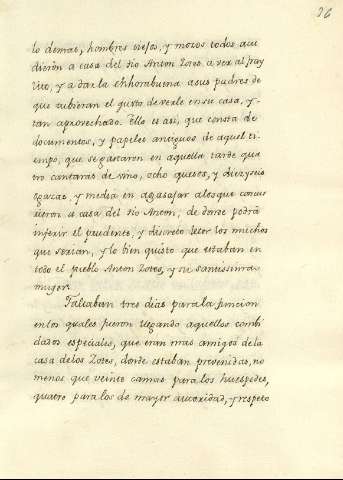 96
lo demas, hombres viejos, y mozos todos acu
dieron a casa del tio Anton Zotes, a ver al fray
lito, y a dar la enhorabuena a sus padres de
que tubieran el gusto de verle en su casa, y
tan aprovechado. Ello es asi, que consta de
documentos, y papeles antiguos de aquel ti
empo, que se gastaron en aquella tarde qua
tro cantaras de vino, ocho quesos, y diez y seis
ogazas, y media en agasajar a los que concur
rieron a casa del tio Anton, de donde podrà
inferir el prudente, y discreto letor los muchos
que serian, y lo bien quisto que estaban en
todo el pueblo Anton Zotes, y su santissima
muger.
Faltaban tres dias para la funcion
en los quales fueron llegando aquellos combi
dados especiales, que eran mas amigos de la
casa de los Zotes, donde estaban prevenidas, no
menos que veinte camas para los huespedes,
quatro para los de mayor autoridad, y respeto